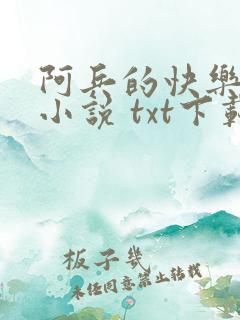 阿兵的快樂
小说 txt下載
板子幾
未经同意禁止转载